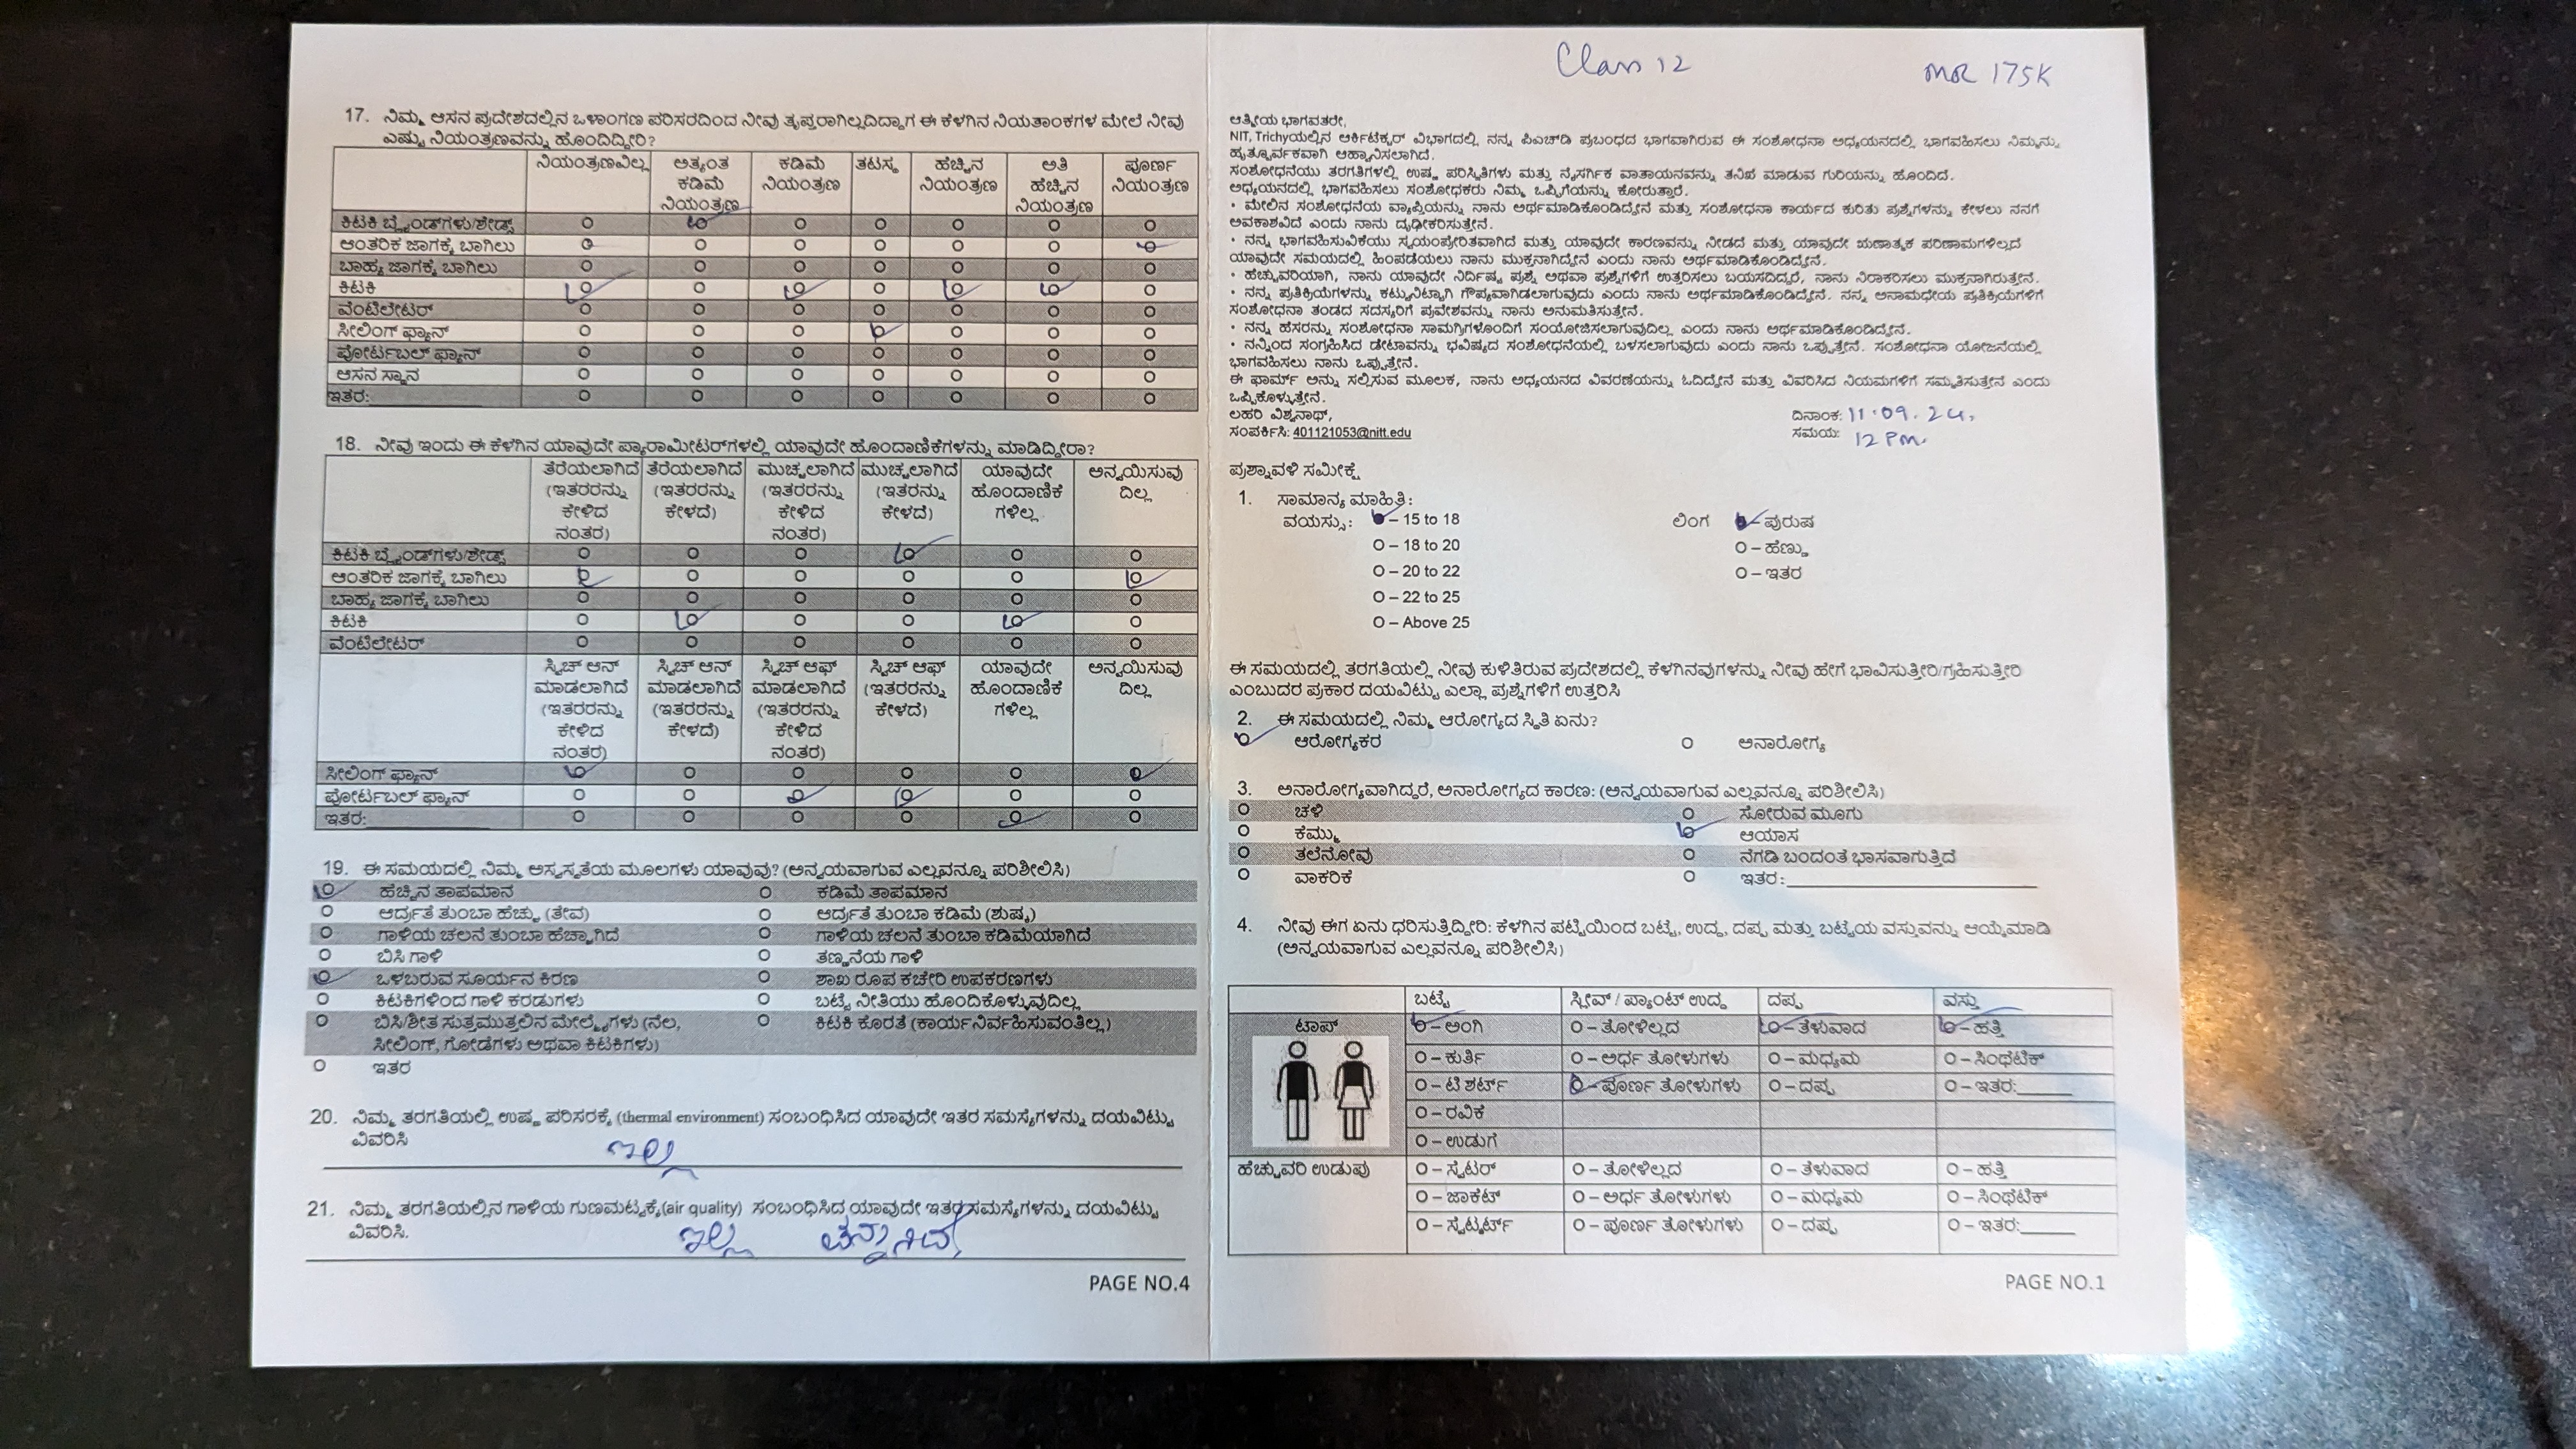 17. ನಿಮ್ಮ ಆಸನ ಪ್ರದೇಶದಲ್ಲಿನ ಒಳಾಂಗಣ ಪರಿಸರದಿಂದ ನೀವು ತೃಪ್ತರಾಗಿಲ್ಲದಿದ್ದಾಗ ಈ ಕೆಳಗಿನ ನಿಯತಾಂಕಗಳ ಮೇಲೆ ನೀವು
ಎಷ್ಟು ನಿಯಂತ್ರಣವನ್ನು ಹೊಂದಿದ್ದೀರಿ?
ನಿಯಂತ್ರಣವಿಲ್ಲ ಅತ್ಯಂತ ಕಡಿಮೆ ನಿಯಂತ್ರಣ ಕಡಿಮೆ ನಿಯಂತ್ರಣ ತಟಸ್ಥ ಹೆಚ್ಚಿನ ನಿಯಂತ್ರಣ ಅತಿ ಹೆಚ್ಚಿನ ನಿಯಂತ್ರಣ ಪೂರ್ಣ ನಿಯಂತ್ರಣ
ಕಿಟಕಿ ಬ್ಲೈಂಡ್‌ಗಳು/ಶೇಡ್ಸ್
ಆಂತರಿಕ ಜಾಗಕ್ಕೆ ಬಾಗಿಲು
ಬಾಹ್ಯ ಜಾಗಕ್ಕೆ ಬಾಗಿಲು
ಕಿಟಕಿ
ವೆಂಟಿಲೇಟರ್
ಸೀಲಿಂಗ್ ಫ್ಯಾನ್
ಪೋರ್ಟಬಲ್ ಫ್ಯಾನ್
ಆಸನ ಸ್ಥಾನ
ಇತರ:
18. ನೀವು ಇಂದು ಈ ಕೆಳಗಿನ ಯಾವುದೇ ಪ್ಯಾರಾಮೀಟರ್‌ಗಳಲ್ಲಿ ಯಾವುದೇ ಹೊಂದಾಣಿಕೆಗಳನ್ನು ಮಾಡಿದ್ದೀರಾ?
ತೆರೆಯಲಾಗಿದೆ (ಇತರರನ್ನು ಕೇಳಿದ ನಂತರ) ತೆರೆಯಲಾಗಿದೆ (ಇತರರನ್ನು ಕೇಳದೆ) ಮುಚ್ಚಲಾಗಿದೆ (ಇತರರನ್ನು ಕೇಳಿದ ನಂತರ) ಮುಚ್ಚಲಾಗಿದೆ (ಇತರನ್ನು ಕೇಳದೆ) ಯಾವುದೇ ಹೊಂದಾಣಿಕೆ ಗಳಿಲ್ಲ ಅನ್ವಯಿಸುವು ದಿಲ್ಲ
ಕಿಟಕಿ ಬ್ಲೈಂಡ್‌ಗಳು/ಶೇಡ್ಸ್
ಆಂತರಿಕ ಜಾಗಕ್ಕೆ ಬಾಗಿಲು
ಬಾಹ್ಯ ಜಾಗಕ್ಕೆ ಬಾಗಿಲು
ಕಿಟಕಿ
ವೆಂಟಿಲೇಟರ್
ಸ್ವಿಚ್ ಆನ್ ಮಾಡಲಾಗಿದೆ (ಇತರರನ್ನು ಕೇಳಿದ ನಂತರ) ಸ್ವಿಚ್ ಆನ್ ಮಾಡಲಾಗಿದೆ (ಇತರರನ್ನು ಕೇಳದೆ) ಸ್ವಿಚ್ ಆಫ್ ಮಾಡಲಾಗಿದೆ (ಇತರರನ್ನು ಕೇಳಿದ ನಂತರ) ಸ್ವಿಚ್ ಆಫ್ (ಇತರರನ್ನು ಕೇಳದೆ) ಯಾವುದೇ ಹೊಂದಾಣಿಕೆ ಗಳಿಲ್ಲ ಅನ್ವಯಿಸುವು ದಿಲ್ಲ
ಸೀಲಿಂಗ್ ಫ್ಯಾನ್
ಪೋರ್ಟಬಲ್ ಫ್ಯಾನ್
ಇತರ:
19. ಈ ಸಮಯದಲ್ಲಿ ನಿಮ್ಮ ಅಸ್ವಸ್ಥತೆಯ ಮೂಲಗಳು ಯಾವುವು? (ಅನ್ವಯವಾಗುವ ಎಲ್ಲವನ್ನೂ ಪರಿಶೀಲಿಸಿ)
ಹೆಚ್ಚಿನ ತಾಪಮಾನ ಕಡಿಮೆ ತಾಪಮಾನ
ಆರ್ದ್ರತೆ ತುಂಬಾ ಹೆಚ್ಚು (ತೇವ) ಆರ್ದ್ರತೆ ತುಂಬಾ ಕಡಿಮೆ (ಶುಷ್ಕ)
ಗಾಳಿಯ ಚಲನೆ ತುಂಬಾ ಹೆಚ್ಚಾಗಿದೆ ಗಾಳಿಯ ಚಲನೆ ತುಂಬಾ ಕಡಿಮೆಯಾಗಿದೆ
ಬಿಸಿ ಗಾಳಿ ತಣ್ಣನೆಯ ಗಾಳಿ
ಒಳಬರುವ ಸೂರ್ಯನ ಕಿರಣ ಶಾಖ ರೂಪ ಕಚೇರಿ ಉಪಕರಣಗಳು
ಕಿಟಕಿಗಳಿಂದ ಗಾಳಿ ಕರಡುಗಳು ಬಟ್ಟೆ ನೀತಿಯು ಹೊಂದಿಕೊಳ್ಳುವುದಿಲ್ಲ
ಬಿಸಿ/ಶೀತ ಸುತ್ತಮುತ್ತಲಿನ ಮೇಲ್ಮೈಗಳು (ನೆಲ, ಕಿಟಕಿ ಕೊರತೆ (ಕಾರ್ಯನಿರ್ವಹಿಸುವಂತಿಲ್ಲ)
ಸೀಲಿಂಗ್, ಗೋಡೆಗಳು ಅಥವಾ ಕಿಟಕಿಗಳು)
ಇತರ
20. ನಿಮ್ಮ ತರಗತಿಯಲ್ಲಿ ಉಷ್ಣ ಪರಿಸರಕ್ಕೆ (thermal environment) ಸಂಬಂಧಿಸಿದ ಯಾವುದೇ ಇತರ ಸಮಸ್ಯೆಗಳನ್ನು ದಯವಿಟ್ಟು
ವಿವರಿಸಿ
ಇಲ್ಲ
21. ನಿಮ್ಮ ತರಗತಿಯಲ್ಲಿನ ಗಾಳಿಯ ಗುಣಮಟ್ಟಕ್ಕೆ(air quality) ಸಂಬಂಧಿಸಿದ ಯಾವುದೇ ಇತರ ಸಮಸ್ಯೆಗಳನ್ನು ದಯವಿಟ್ಟು
ವಿವರಿಸಿ.
ಇಲ್ಲ
PAGE NO.4
Class 12 MR 175K
ಆತ್ಮೀಯ ಭಾಗವತರೇ,
NIT, Trichyಯಲ್ಲಿನ ಆರ್ಕಿಟೆಕ್ಚರ್ ವಿಭಾಗದಲ್ಲಿ ನನ್ನ ಪಿಎಚ್‌ಡಿ ಪ್ರಬಂಧದ ಭಾಗವಾಗಿರುವ ಈ ಸಂಶೋಧನಾ ಅಧ್ಯಯನದಲ್ಲಿ ಭಾಗವಹಿಸಲು ನಿಮ್ಮನ್ನು
ಹೃತ್ಪೂರ್ವಕವಾಗಿ ಆಹ್ವಾನಿಸಲಾಗಿದೆ.
ಸಂಶೋಧನೆಯು ತರಗತಿಗಳಲ್ಲಿ ಉಷ್ಣ ಪರಿಸ್ಥಿತಿಗಳು ಮತ್ತು ನೈಸರ್ಗಿಕ ವಾತಾಯನವನ್ನು ತನಿಖೆ ಮಾಡುವ ಗುರಿಯನ್ನು ಹೊಂದಿದೆ.
ಅಧ್ಯಯನದಲ್ಲಿ ಭಾಗವಹಿಸಲು ಸಂಶೋಧಕರು ನಿಮ್ಮ ಒಪ್ಪಿಗೆಯನ್ನು ಕೋರುತ್ತಾರೆ.
• ಮೇಲಿನ ಸಂಶೋಧನೆಯ ವ್ಯಾಪ್ತಿಯನ್ನು ನಾನು ಅರ್ಥಮಾಡಿಕೊಂಡಿದ್ದೇನೆ ಮತ್ತು ಸಂಶೋಧನಾ ಕಾರ್ಯದ ಕುರಿತು ಪ್ರಶ್ನೆಗಳನ್ನು ಕೇಳಲು ನನಗೆ
ಅವಕಾಶವಿದೆ ಎಂದು ನಾನು ದೃಢೀಕರಿಸುತ್ತೇನೆ.
• ನನ್ನ ಭಾಗವಹಿಸುವಿಕೆಯು ಸ್ವಯಂಪ್ರೇರಿತವಾಗಿದೆ ಮತ್ತು ಯಾವುದೇ ಕಾರಣವನ್ನು ನೀಡದೆ ಮತ್ತು ಯಾವುದೇ ಋಣಾತ್ಮಕ ಪರಿಣಾಮಗಳಿಲ್ಲದೆ
ಯಾವುದೇ ಸಮಯದಲ್ಲಿ ಹಿಂಪಡೆಯಲು ನಾನು ಮುಕ್ತನಾಗಿದ್ದೇನೆ ಎಂದು ನಾನು ಅರ್ಥಮಾಡಿಕೊಂಡಿದ್ದೇನೆ.
• ಹೆಚ್ಚುವರಿಯಾಗಿ, ನಾನು ಯಾವುದೇ ನಿರ್ದಿಷ್ಟ ಪ್ರಶ್ನೆ ಅಥವಾ ಪ್ರಶ್ನೆಗಳಿಗೆ ಉತ್ತರಿಸಲು ಬಯಸದಿದ್ದರೆ, ನಾನು ನಿರಾಕರಿಸಲು ಮುಕ್ತನಾಗಿರುತ್ತೇನೆ.
• ನನ್ನ ಪ್ರತಿಕ್ರಿಯೆಗಳನ್ನು ಕಟ್ಟುನಿಟ್ಟಾಗಿ ಗೌಪ್ಯವಾಗಿಡಲಾಗುವುದು ಎಂದು ನಾನು ಅರ್ಥಮಾಡಿಕೊಂಡಿದ್ದೇನೆ. ನನ್ನ ಅನಾಮಧೇಯ ಪ್ರತಿಕ್ರಿಯೆಗಳಿಗೆ
ಸಂಶೋಧನಾ ತಂಡದ ಸದಸ್ಯರಿಗೆ ಪ್ರವೇಶವನ್ನು ನಾನು ಅನುಮತಿಸುತ್ತೇನೆ.
• ನನ್ನ ಹೆಸರನ್ನು ಸಂಶೋಧನಾ ಸಾಮಗ್ರಿಗಳೊಂದಿಗೆ ಸಂಯೋಜಿಸಲಾಗುವುದಿಲ್ಲ ಎಂದು ನಾನು ಅರ್ಥಮಾಡಿಕೊಂಡಿದ್ದೇನೆ.
• ನನ್ನಿಂದ ಸಂಗ್ರಹಿಸಿದ ಡೇಟಾವನ್ನು ಭವಿಷ್ಯದ ಸಂಶೋಧನೆಯಲ್ಲಿ ಬಳಸಲಾಗುವುದು ಎಂದು ನಾನು ಒಪ್ಪುತ್ತೇನೆ. ಸಂಶೋಧನಾ ಯೋಜನೆಯಲ್ಲಿ
ಭಾಗವಹಿಸಲು ನಾನು ಒಪ್ಪುತ್ತೇನೆ.
ಈ ಫಾರ್ಮ್ ಅನ್ನು ಸಲ್ಲಿಸುವ ಮೂಲಕ, ನಾನು ಅಧ್ಯಯನದ ವಿವರಣೆಯನ್ನು ಓದಿದ್ದೇನೆ ಮತ್ತು ವಿವರಿಸಿದ ನಿಯಮಗಳಿಗೆ ಸಮ್ಮತಿಸುತ್ತೇನೆ ಎಂದು
ಒಪ್ಪಿಕೊಳ್ಳುತ್ತೇನೆ.
ಲಹರಿ ವಿಶ್ವನಾಥ್, ದಿನಾಂಕ: 11.09.24.
ಸಂಪರ್ಕಿಸಿ: 401121053@nitt.edu ಸಮಯ: 12 Pm.
ಪ್ರಶ್ನಾವಳಿ ಸಮೀಕ್ಷೆ
1. ಸಾಮಾನ್ಯ ಮಾಹಿತಿ:
ವಯಸ್ಸು: – 15 to 18 ಲಿಂಗ – ಪುರುಷ
O – 18 to 20 O – ಹೆಣ್ಣು
O – 20 to 22 O – ಇತರ
O – 22 to 25
O – Above 25
ಈ ಸಮಯದಲ್ಲಿ ತರಗತಿಯಲ್ಲಿ ನೀವು ಕುಳಿತಿರುವ ಪ್ರದೇಶದಲ್ಲಿ ಕೆಳಗಿನವುಗಳನ್ನು ನೀವು ಹೇಗೆ ಭಾವಿಸುತ್ತೀರಿ/ಗ್ರಹಿಸುತ್ತೀರಿ
ಎಂಬುದರ ಪ್ರಕಾರ ದಯವಿಟ್ಟು ಎಲ್ಲಾ ಪ್ರಶ್ನೆಗಳಿಗೆ ಉತ್ತರಿಸಿ
2. ಈ ಸಮಯದಲ್ಲಿ ನಿಮ್ಮ ಆರೋಗ್ಯದ ಸ್ಥಿತಿ ಏನು?
ಆರೋಗ್ಯಕರ ಅನಾರೋಗ್ಯ
3. ಅನಾರೋಗ್ಯವಾಗಿದ್ದರೆ, ಅನಾರೋಗ್ಯದ ಕಾರಣ: (ಅನ್ವಯವಾಗುವ ಎಲ್ಲವನ್ನೂ ಪರಿಶೀಲಿಸಿ)
ಚಳಿ ಸೋರುವ ಮೂಗು
ಕೆಮ್ಮು ಆಯಾಸ
ತಲೆನೋವು ನೆಗಡಿ ಬಂದಂತೆ ಭಾಸವಾಗುತ್ತಿದೆ
ವಾಕರಿಕೆ ಇತರ:
4. ನೀವು ಈಗ ಏನು ಧರಿಸುತ್ತಿದ್ದೀರಿ: ಕೆಳಗಿನ ಪಟ್ಟಿಯಿಂದ ಬಟ್ಟೆ, ಉದ್ದ, ದಪ್ಪ ಮತ್ತು ಬಟ್ಟೆಯ ವಸ್ತುವನ್ನು ಆಯ್ಕೆಮಾಡಿ
(ಅನ್ವಯವಾಗುವ ಎಲ್ಲವನ್ನೂ ಪರಿಶೀಲಿಸಿ)
ಬಟ್ಟೆ ಸ್ಲೀವ್ / ಪ್ಯಾಂಟ್ ಉದ್ದ ದಪ್ಪ ವಸ್ತು
ಟಾಪ್ O – ಅಂಗಿ O – ತೋಳಿಲ್ಲದ O – ತೆಳುವಾದ O – ಹತ್ತಿ
O – ಕುರ್ತಿ O – ಅರ್ಧ ತೋಳುಗಳು O – ಮಧ್ಯಮ O – ಸಿಂಥೆಟಿಕ್
O – ಟಿ ಶರ್ಟ್ O – ಪೂರ್ಣ ತೋಳುಗಳು O – ದಪ್ಪ O – ಇತರ:
O – ರವಿಕೆ
O – ಉಡುಗೆ
ಹೆಚ್ಚುವರಿ ಉಡುಪು O – ಸ್ವೆಟರ್ O – ತೋಳಿಲ್ಲದ O – ತೆಳುವಾದ O – ಹತ್ತಿ
O – ಜಾಕೆಟ್ O – ಅರ್ಧ ತೋಳುಗಳು O – ಮಧ್ಯಮ O – ಸಿಂಥೆಟಿಕ್
O – ಸ್ವೆಟ್ಶರ್ಟ್ O – ಪೂರ್ಣ ತೋಳುಗಳು O – ದಪ್ಪ O – ಇತರ:
PAGE NO.1